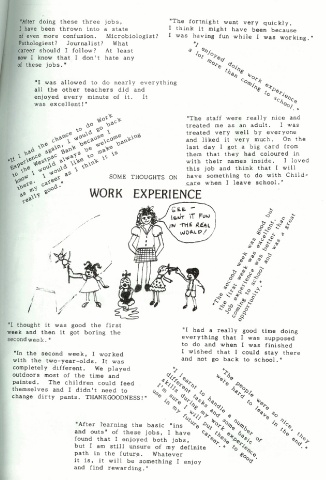 "After doing these three jobs,
I have been thrown into a state
of even more confusion. Microbiologist?
Pathologist? Journalist? What
career should I follow? At least
now I know that I don't hate any
of these jobs."
"The fortnight went very quickly,
I think it might have been because
I was having fun while I was working."
"I enjoyed doing work experience -
a lot more than coming to school."
"I was allowed to do nearly everything
all the other teachers did and
enjoyed every minute of it. It
was excellent!"
"If I had the chance to do Work
Experience again, I would go back
to the Westpac Bank because
know I would always be welcome
there. I would like to make banking
as my career as I think it is
really good."
"The staff were really nice and
treated me as an adult. I was
treated very well by everyone
and liked it very much. On the
last day I got a big card from
them that they had coloured in
with their names inside. I loved
this job and think that I will
have something to do with Child-
care when I leave school."
SOME THOUGHTS ON
WORK EXPERIENCE
GEE -
ISN'T IT FUN
IN THE REAL
WORLD!
"The second week was good but
the first week was excellent.
Job experience was better than
coming to school and was a great
opportunity."
"I thought it was good the first
week and then it got boring the
second week."
"I had a really good time doing
everything that I was supposed
to do and when I was finished
I wished that I could stay there
and not go back to school."
"In the second week, I worked
with the two-year-olds. It was
completely different. We played
outdoors most of the time and
painted. The children could feed
themselves and I didn't need to
change dirty pants. THANKGOODNESS!"
"The people were so nice, they
were hard to leave in the end."
"I learnt to handle a number of
different tasks and some basic
skills during my work experience.
I'm sure I will put these to good
use in my future career."
"After learning the basic "ins
and outs" of these jobs, I have
found that I enjoyed both jobs,
but I am still unsure of my definite
path in the future. Whatever
it is, it will be something I enjoy
and find rewarding."